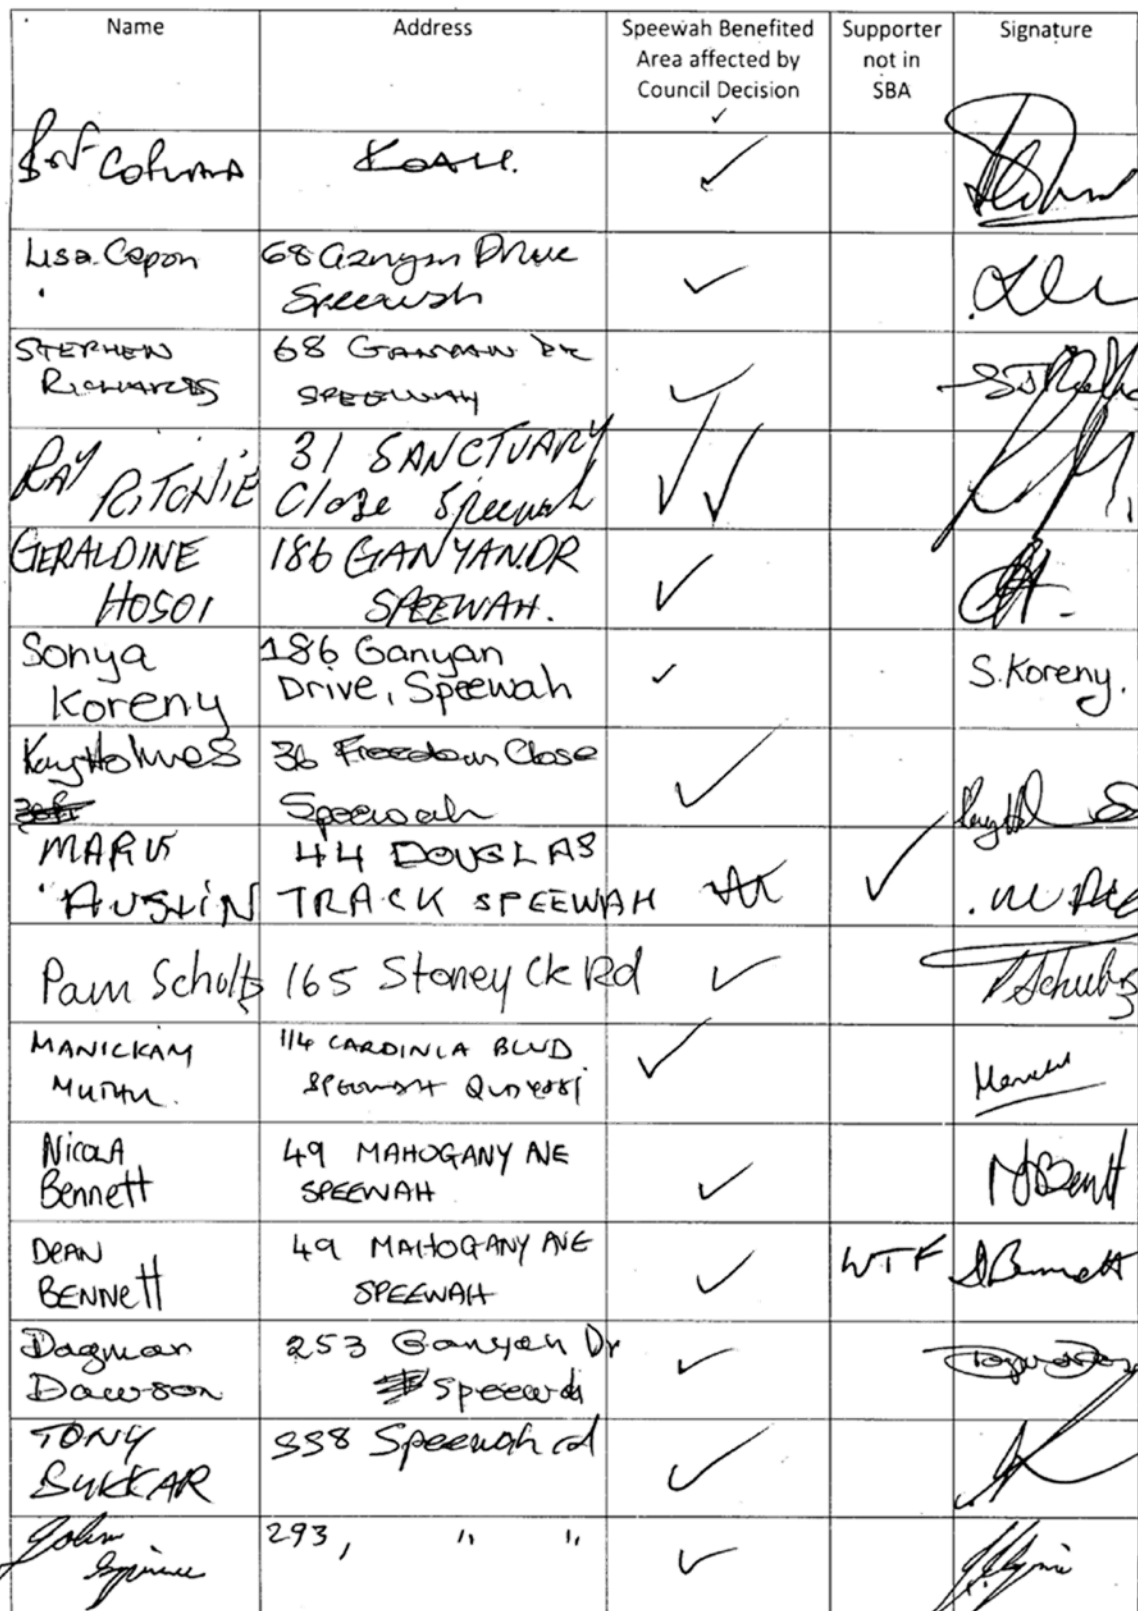 Name Address Speewah Benefited Area affected by Council Decision Supporter not in SBA Signature
✓
✓
Lisa Capon 68 Ganyan Drive Speewah ✓
STEPHEN RICHARDS 68 GANYAN DR SPEEWAH ✓
RAY RITCHIE 31 SANCTUARY Close Speewah ✓ ✓
GERALDINE HOSOI 186 GANYAN.DR SPEEWAH. ✓
Sonya Koreny 186 Ganyan Drive, Speewah ✓ S. Koreny.
Kay Holmes 36 Freedom Close Speewah ✓
MARK AUSTIN 44 DOUGLAS TRACK SPEEWAH ✓
Pam Schultz 165 Stoney Ck Rd ✓ P Schultz
MANICKAM MUTHU. 114 CARDINIA BLVD SPEEWAH QLD 4881 ✓
NICOLA Bennett 49 MAHOGANY AVE SPEEWAH ✓ N Bennett
DEAN BENNETT 49 MAHOGANY AVE SPEEWAH ✓ WTF D Bennett
Dagmar Dawson 253 Ganyan Dr Speewah ✓
TONY SUKKAR 338 Speewah rd ✓
John 293, " " ✓